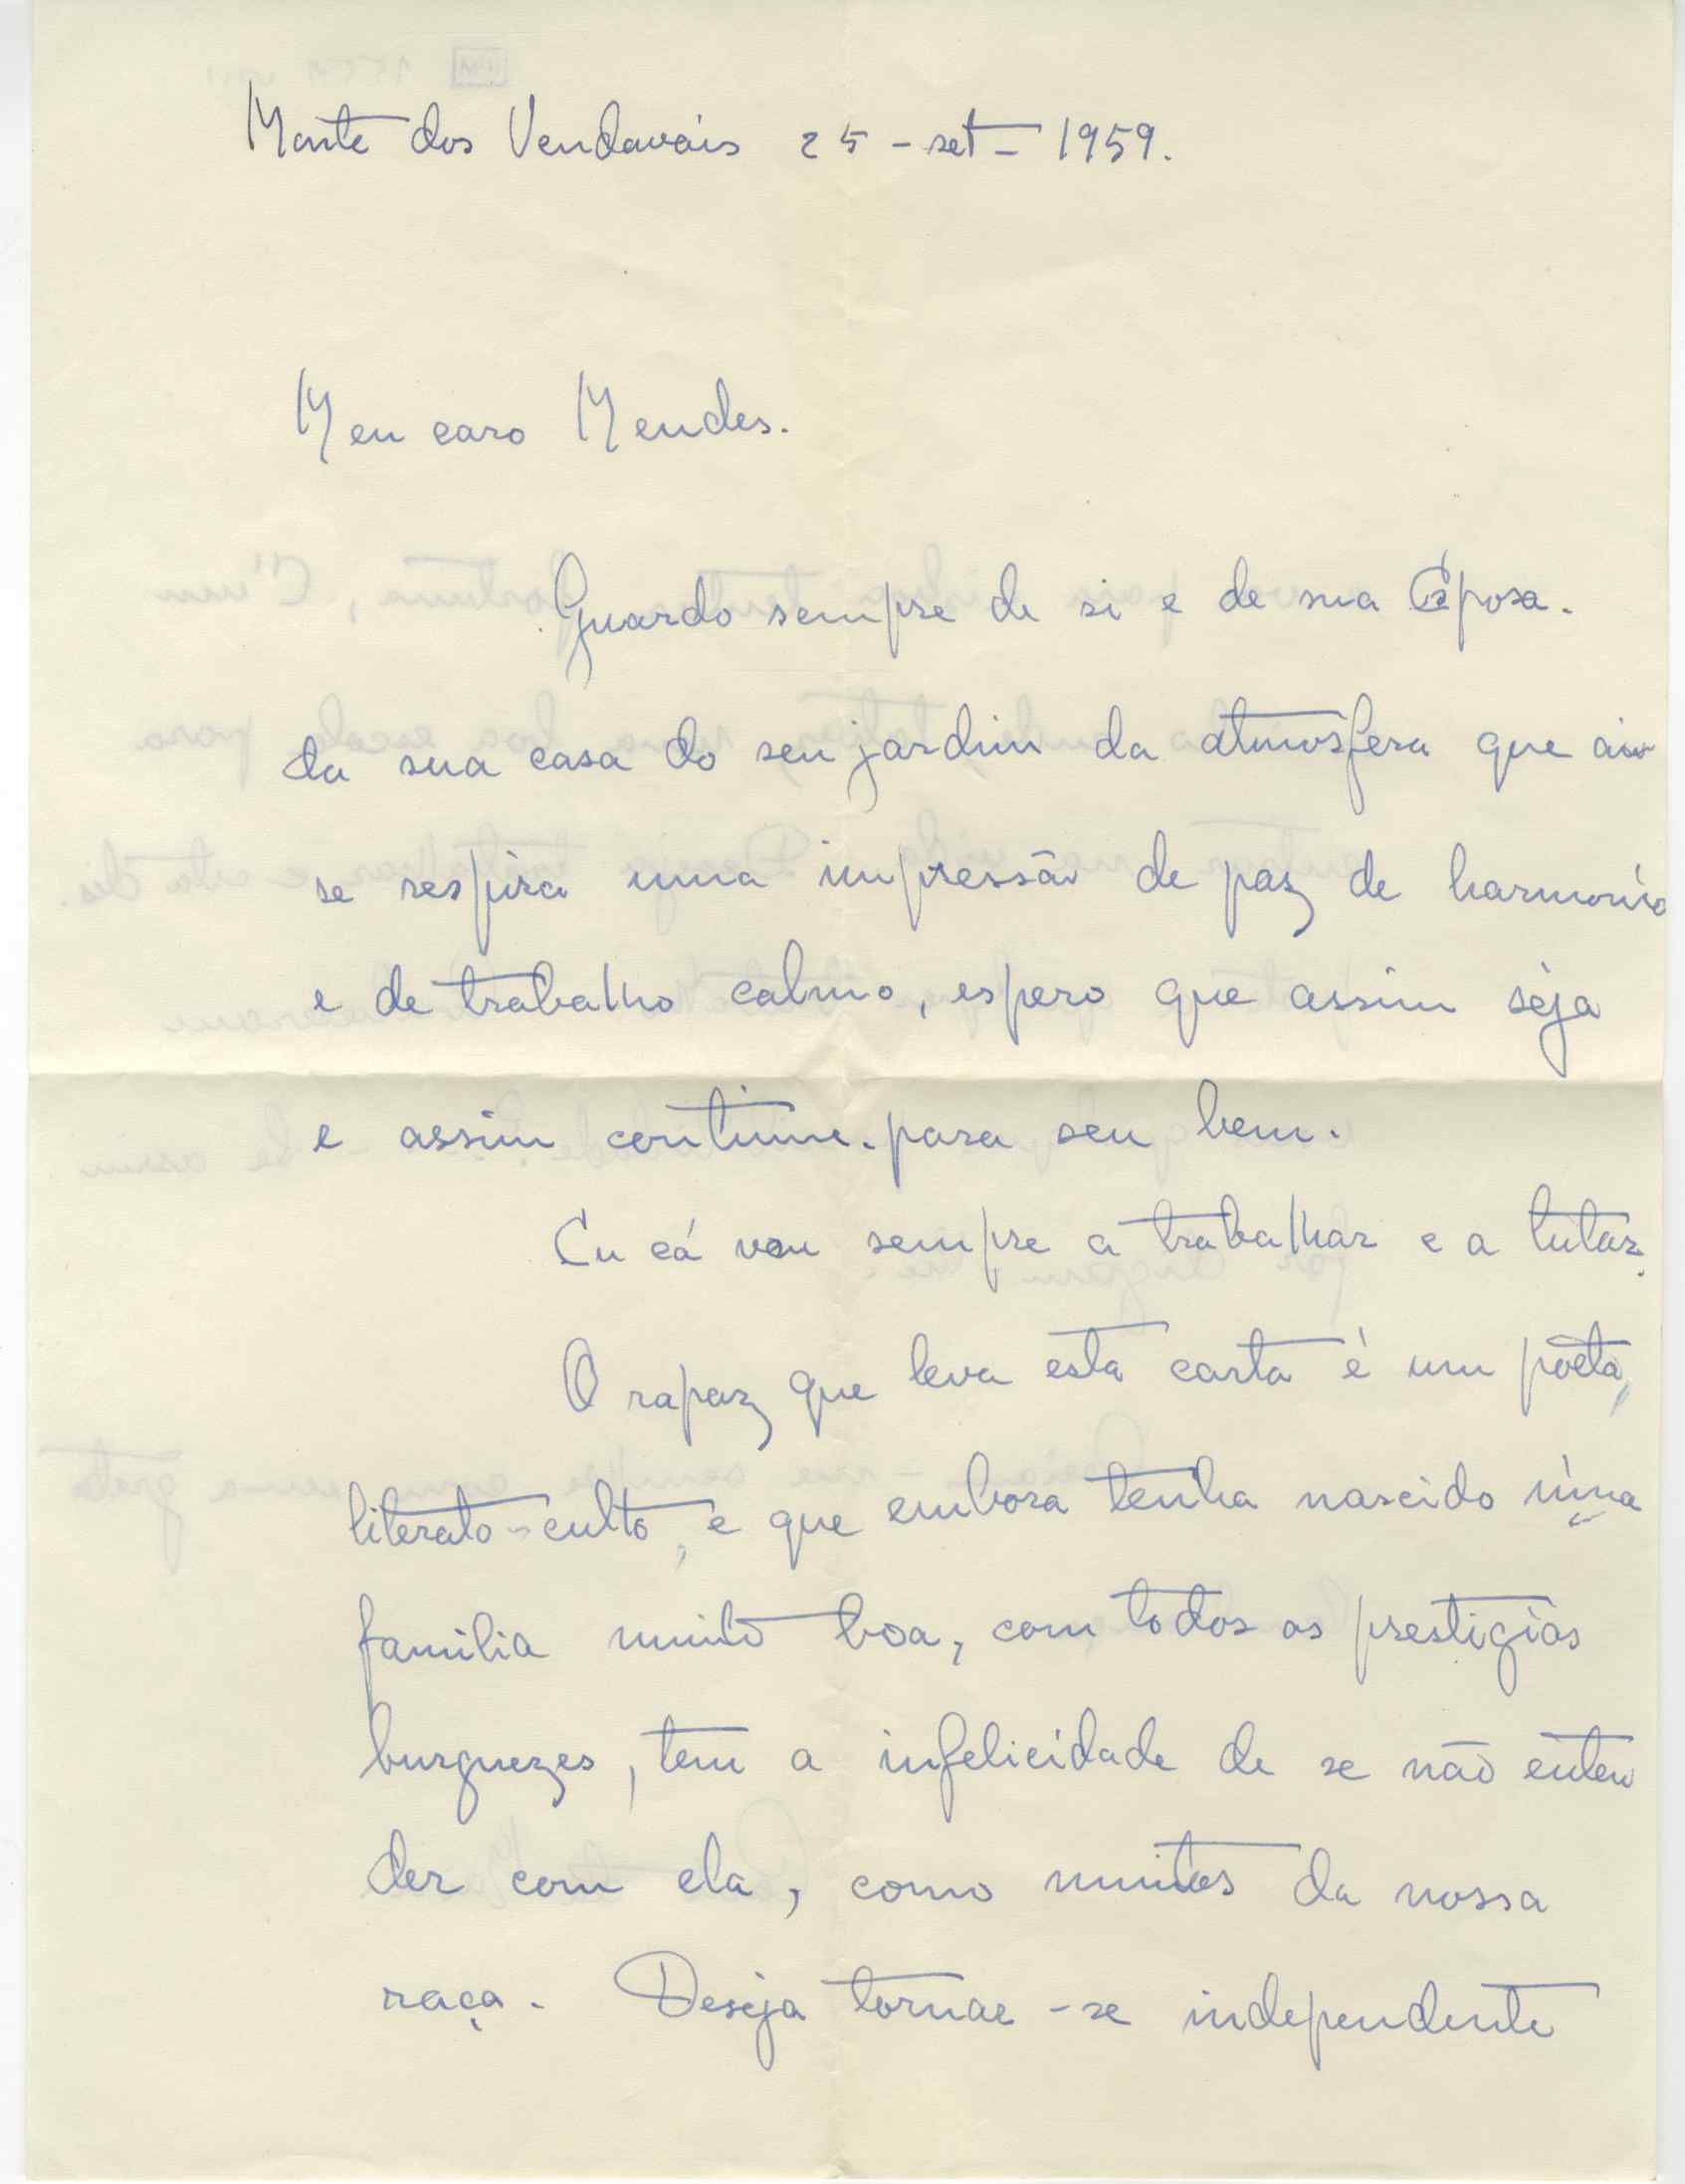 Monte dos Vendavais 25 - set - 1959.
Meu caro Mendes.
Guardo sempre de si e de sua Esposa.
da sua casa do seu jardim da atmosfera que aí
se respira uma impressão de paz de harmonia
e de trabalho calmo, espero que assim seja
e assim continue. para seu bem.
Eu cá vou sempre a trabalhar e a lutar.
O rapaz que leva esta carta é um poèta,
literato - culto, e que embora tenha nascido numa
familia muito boa, com todos os prestigios
burguezes, tem a infelicidade de se não enten
der com ela, como muitos da nossa
raça. Deseja tornar-se independente